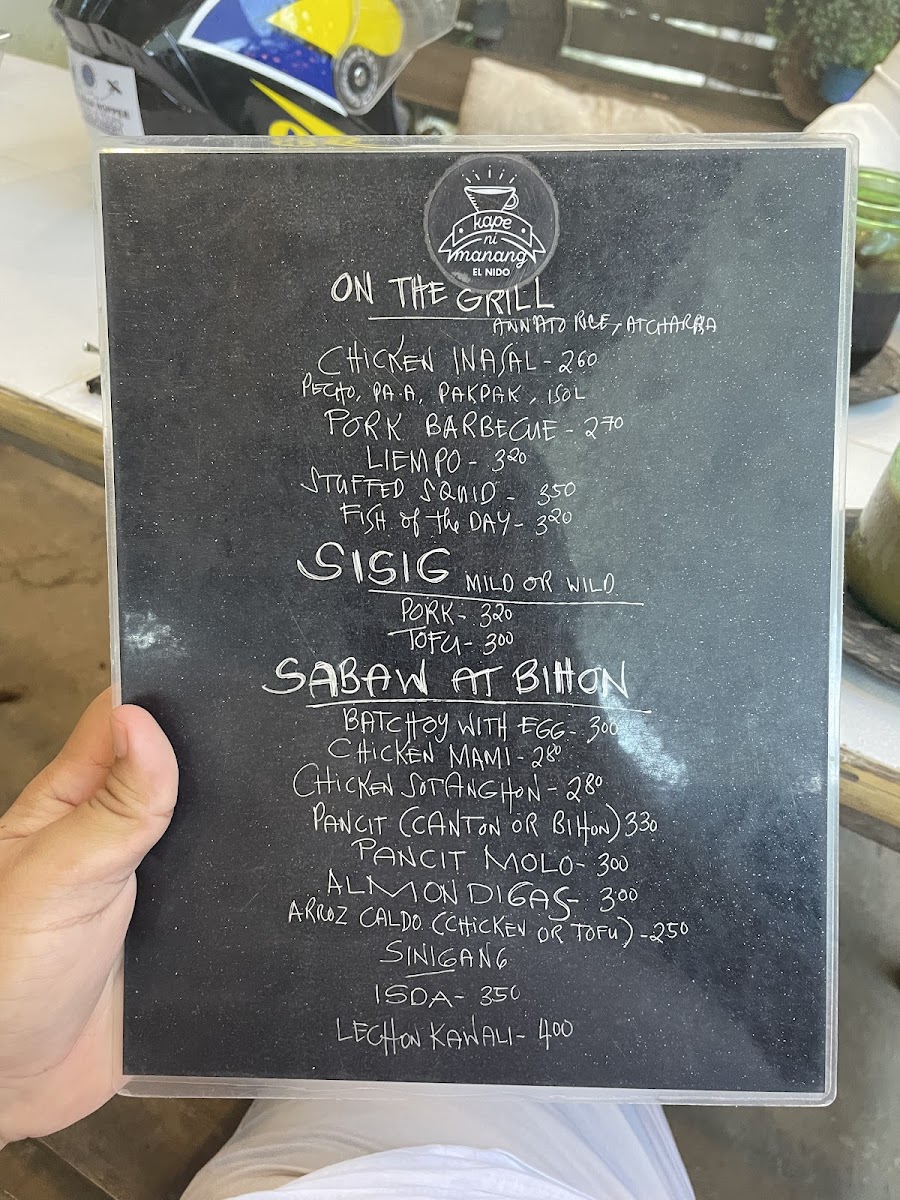 HOPPER
kape
ni
manang
EL NIDO
ON THE GRILL
ANNATO RICE, ATCHARRA
CHICKEN INASAL - 260
PECHO, PA.A, PAKPAK, ISOL
PORK BARBECUE - 270
LIEMPO - 320
STUFFED SQUID - 350
FISH of the DAY - 320
SISIG MILD OR WILD
PORK - 320
TOFU - 300
SABAW AT BIHON
BATCHOY WITH EGG - 300
CHICKEN MAMI - 280
CHICKEN SOTANGHON - 280
PANCIT (CANTON OR BIHON) 330
PANCIT MOLO - 300
ALMONDIGAS - 300
ARROZ CALDO (CHICKEN OR TOFU) - 250
SINIGANG
ISDA - 350
LECHON KAWALI - 400